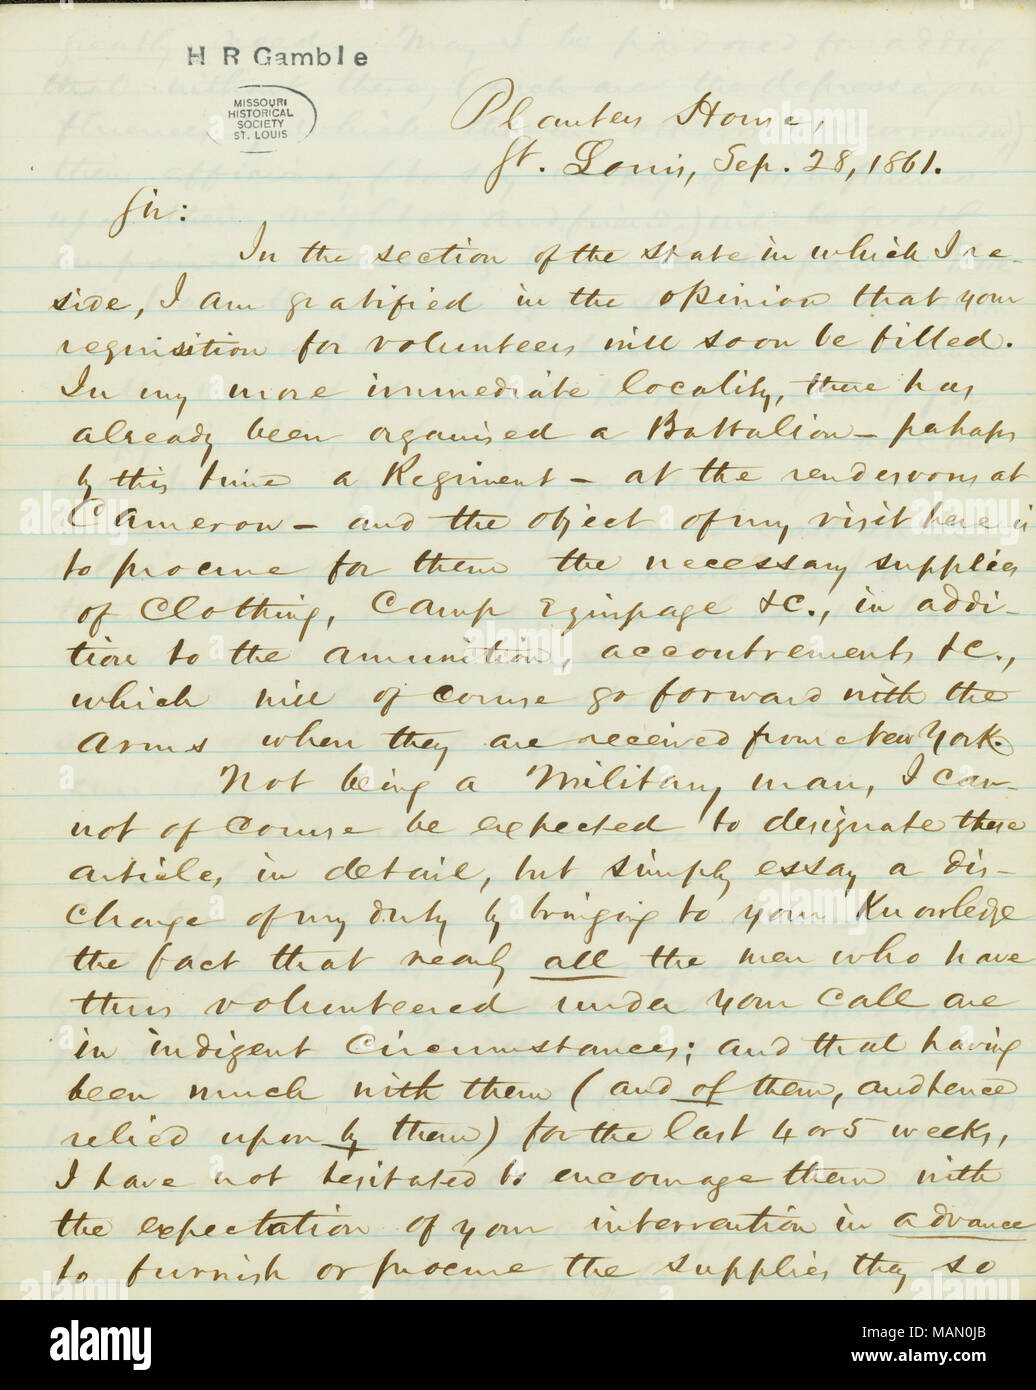 H R Gamble
MISSOURI
HISTORICAL
SOCIETY
ST. LOUIS
Planters House,
St. Louis, Sep. 28, 1861.
Sir:
In the section of the State in which I re-
side, I am gratified in the opinion that your
requisition for volunteers will soon be filled.
In my more immediate locality, there has
already been organised a Battalion - perhaps
by this time a Regiment - at the rendezvous at
Cameron - and the object of my visit here is
to procure for them the necessary supplies
of Clothing, Camp Equipage &c., in addi-
tion to the amunition, accoutrements &c.,
which will of course go forward with the
arms when they are received from New York.
Not being a Military man, I can-
not of course be expected to designate these
articles in detail, but simply essay a dis-
charge of my duty by bringing to your Knowledge
the fact that nearly all the men who have
thus volunteered under your call are
in indigent Circumstances; and that having
been much with them (and of them, and hence
relied upon by them) for the last 4 or 5 weeks,
I have not hesitated to encourage them with
the expectation of your intervention in advance
to furnish or procure the supplies they so
alamy
Image ID: MAN0JB
www.alamy.com